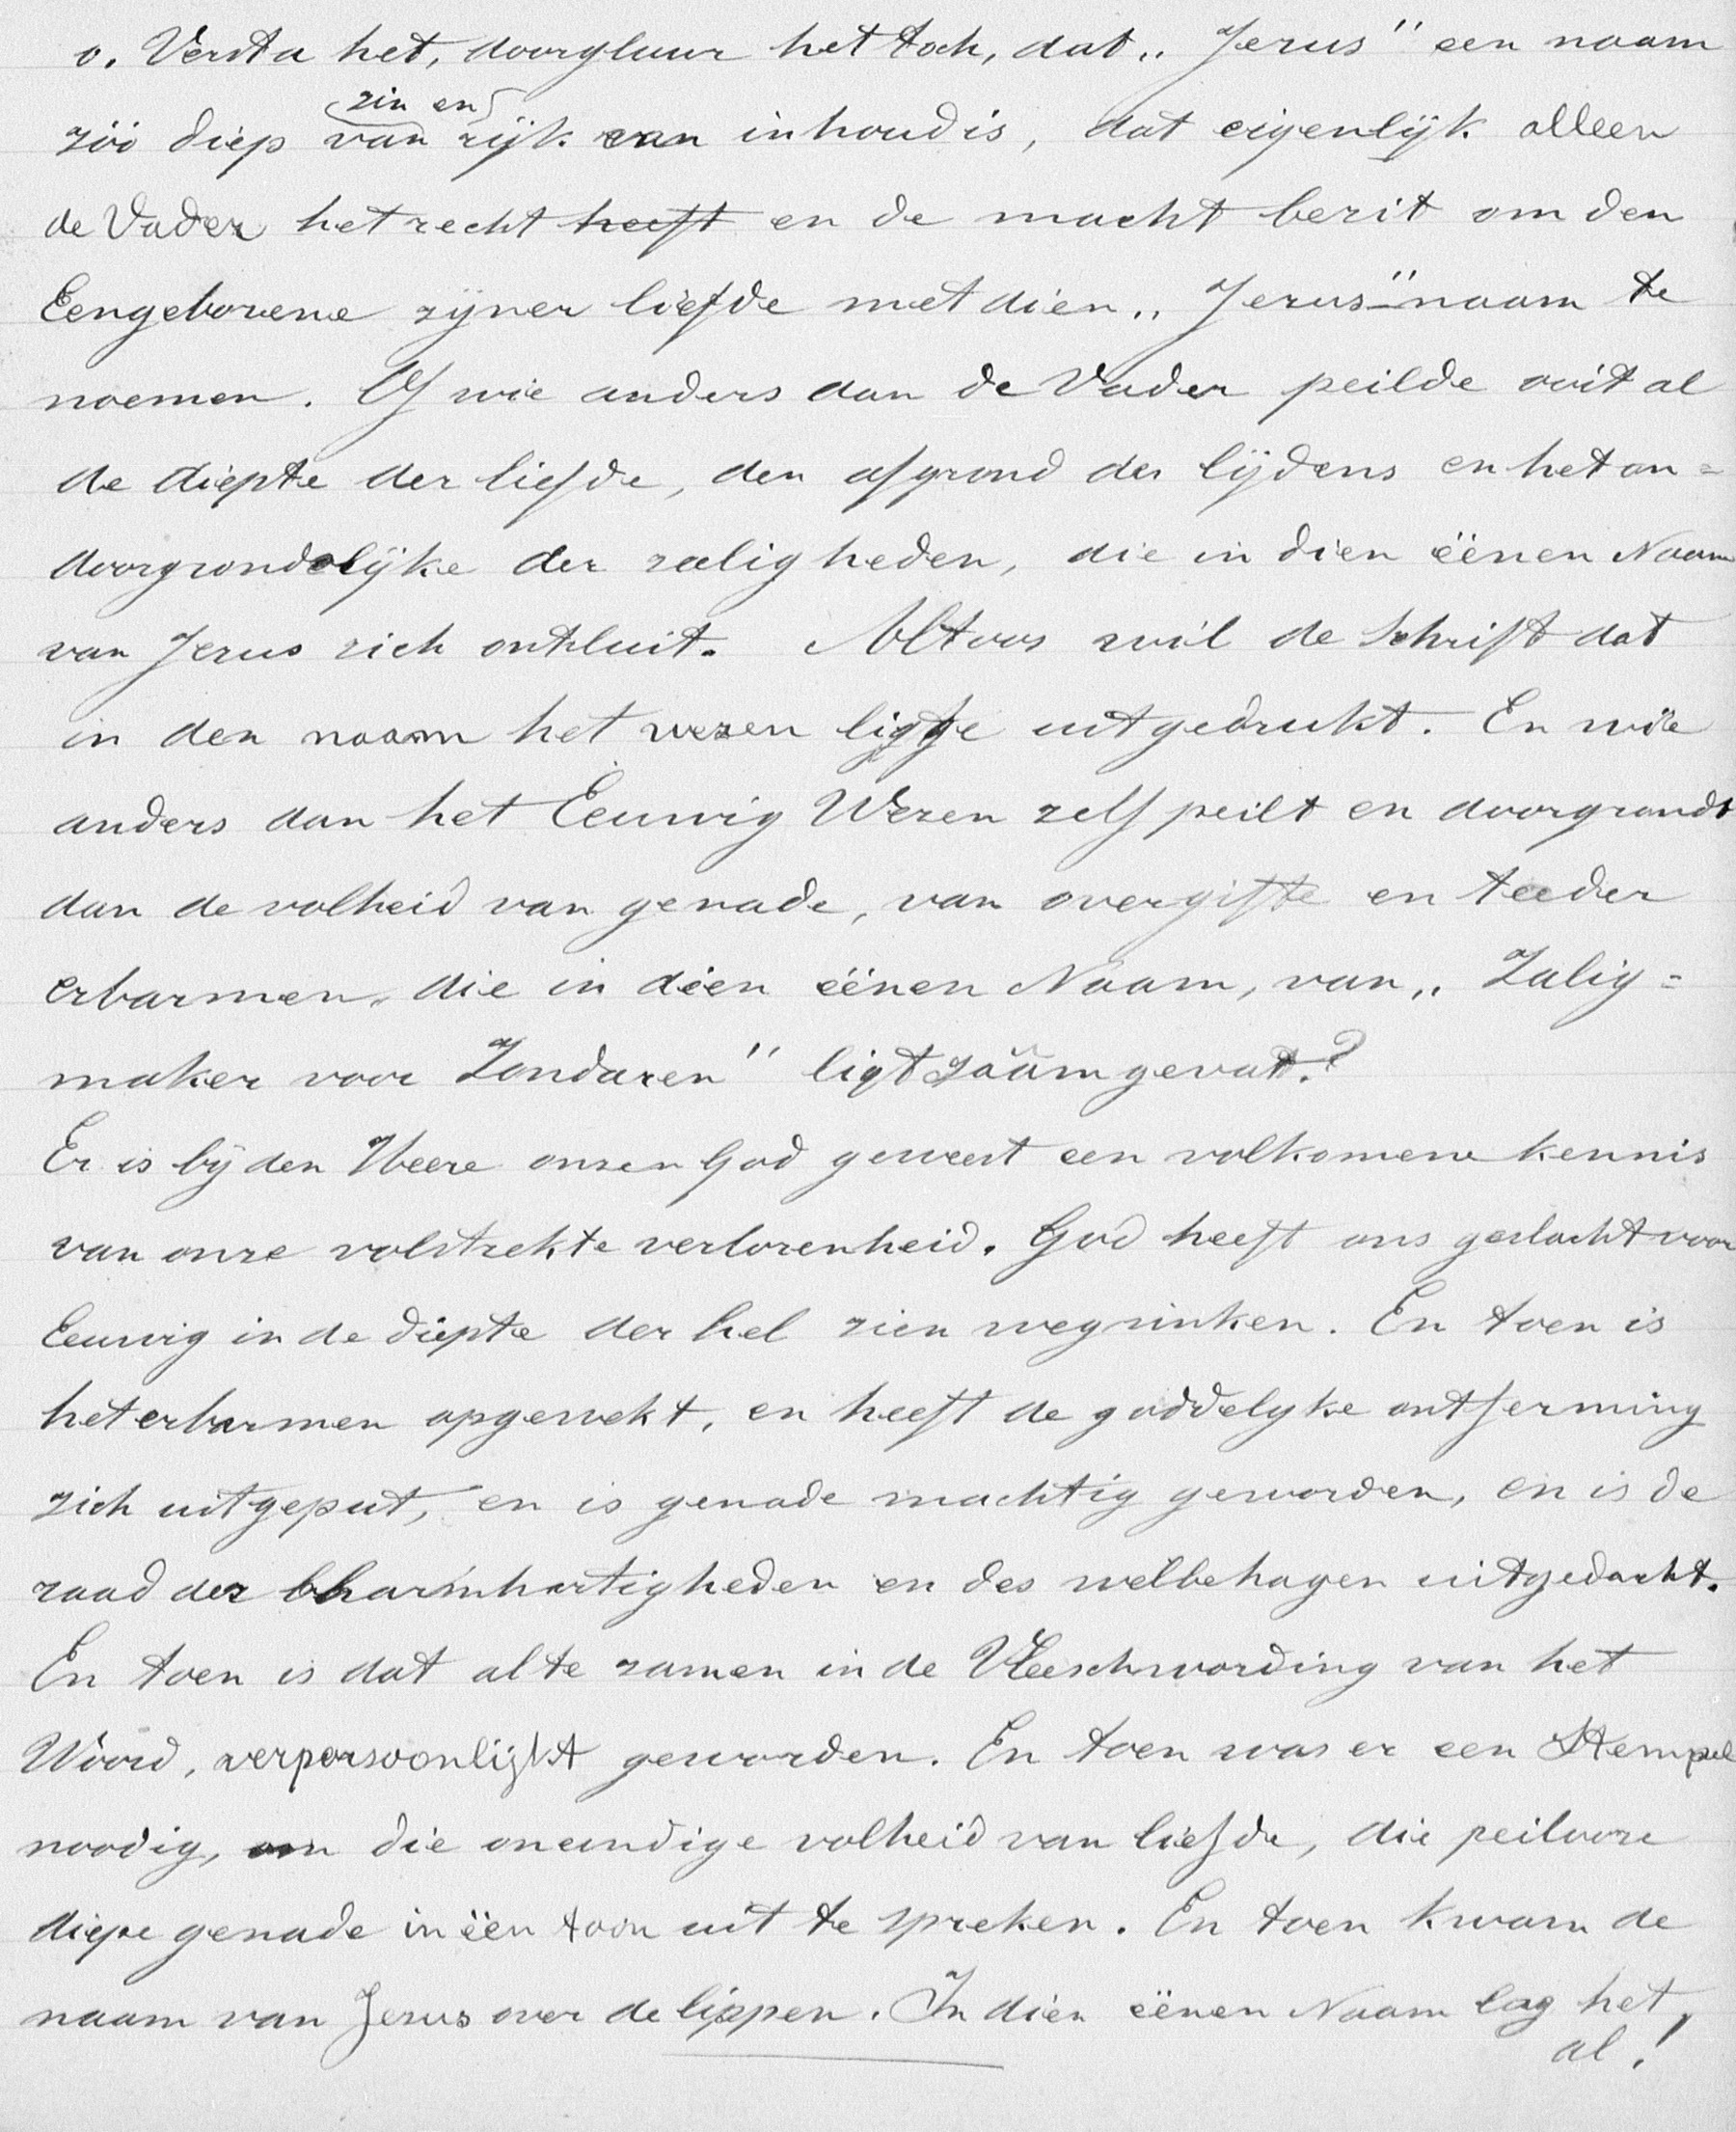 o. Versta het, doorgluur het toch, dat „ Jezus" een naam
zóó diep van zin en rijk van inhoud is, dat eigenlijk alleen
de Vader het recht heeft en de macht bezit om den
Eengeborene zijner liefde met dien „ Jezus"-naam te
noemen. Of wie anders dan de Vader peilde ooit al
de diepte der liefde, den afgrond des lijdens en het on=
doorgrondelijke der zaligheden, die in dien éénen Naam
van Jezus zich ontsluit. Altoos wil de Schrift dat
in den naam het wezen ligge uitgedrukt. En wie
anders dan het Eeuwig Wezen zelf peilt en doorgrondt
dan de volheid van genade, van overgifte en teeder
erbarmen, die in dien éénen Naam, van „ Zalig=
maker voor Zondaren" ligt zaâmgevat?
Er is bij den Heere onzen God geweest een volkomene kennis
van onze volstrekte verlorenheid. God heeft ons geslacht voor
Eeuwig in de diepte der hel zien wegzinken. En toen is
het erbarmen opgewekt, en heeft de goddelyke ontferming
zich uitgeput, en is genade machtig geworden, en is de
raad der barmhartigheden en des welbehagen uitgedacht.
En toen is dat al te zamen in de Vleeschwording van het
Woord, verpersoonlijkt geworden. En toen was er een Stempel
noodig, om die oneindige volheid van liefde, die peilooze
diepe genade in één toon uit te spreken. En toen kwam de
naam van Jezus over de lippen. In dien éénen Naam lag het,
al!